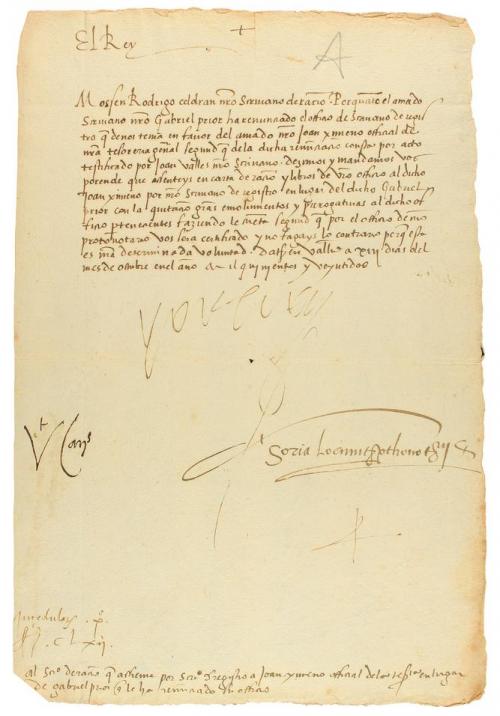 El Rey
A
Mossen Rodrigo celdran nr̃o Scrivano de racio. Porquanto el amado
Scrivano nr̃o Gabriel prior ha renunciado el offitio de Scrivano de regis
tro q̃ de nos tenia en favor del amado nr̃o Joan ximeno official de
nr̃a tesoreria geñal segund q̃ de la dicha renunciacion consta por acto
testificado por Joan valles nr̃o Scrivano. Dezimos y mandamos vos
porende que assenteys en carta de racio y libros de vr̃o officio al dicho
Joan ximeno por nr̃o Scrivano de registro en lugar del dicho Gabriel
prior con la quitacion gr̃as emolimentos y prerogativas al dicho of
fitio pertenecientes faziendo le neta segund q̃ por el officio de nr̃o
protonotario vos sera certificado y no fagays lo contrario porq̃ esta
es nr̃a determinada voluntad. Dat en Vall a xiii dias del
mes de octubre en el año de mil quinientos y veyntidos
yo el rey
Vt Cans
Soria Locumt Prothonot
C L xii
Al Scrivano de racio q̃ assiente por Scr̃o d registro a Joan ximeno official de la tesr̃ia en lugar
de gabriel prior q̃ le ha renunciado su officio